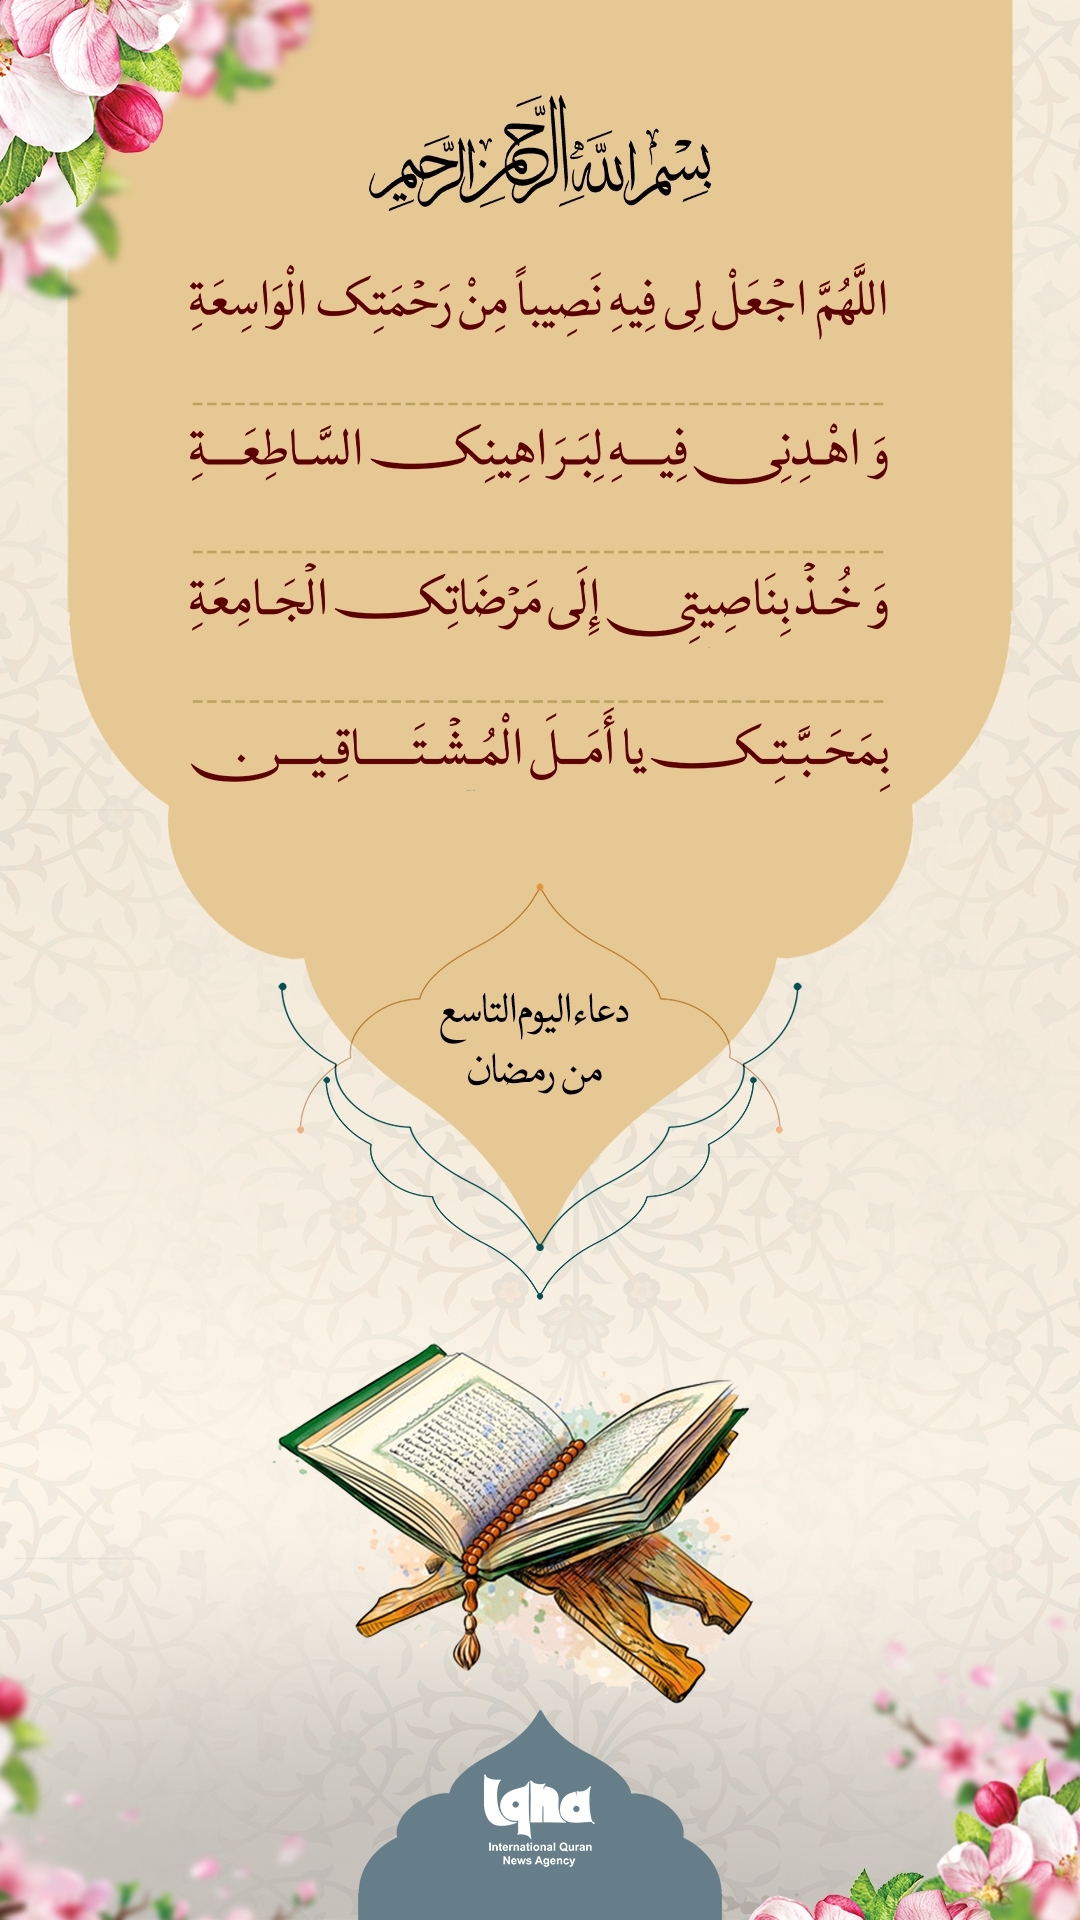 بِسْمِ اللَّهِ الرَّحْمٰنِ الرَّحِيمِ
اللَّهُمَّ اجْعَلْ لِی فِيهِ نَصِيباً مِنْ رَحْمَتِک الْوَاسِعَةِ
وَ اهْدِنِی فِيهِ لِبَرَاهِينِک السَّاطِعَةِ
وَ خُذْ بِنَاصِيتِی إِلَی مَرْضَاتِک الْجَامِعَةِ
بِمَحَبَّتِک يا أَمَلَ الْمُشْتَاقِين.
دعاء اليوم التاسع
من رمضان
iqna
International Quran
News Agency